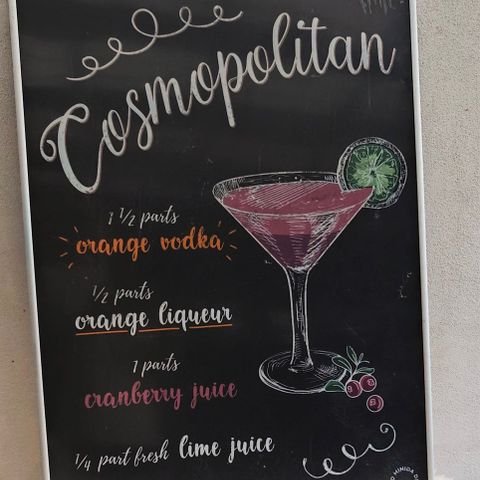 Cosmopolitan
1 1/2 parts
orange vodka
1/2 parts
orange liqueur
1 parts
cranberry juice
1/4 part fresh lime juice